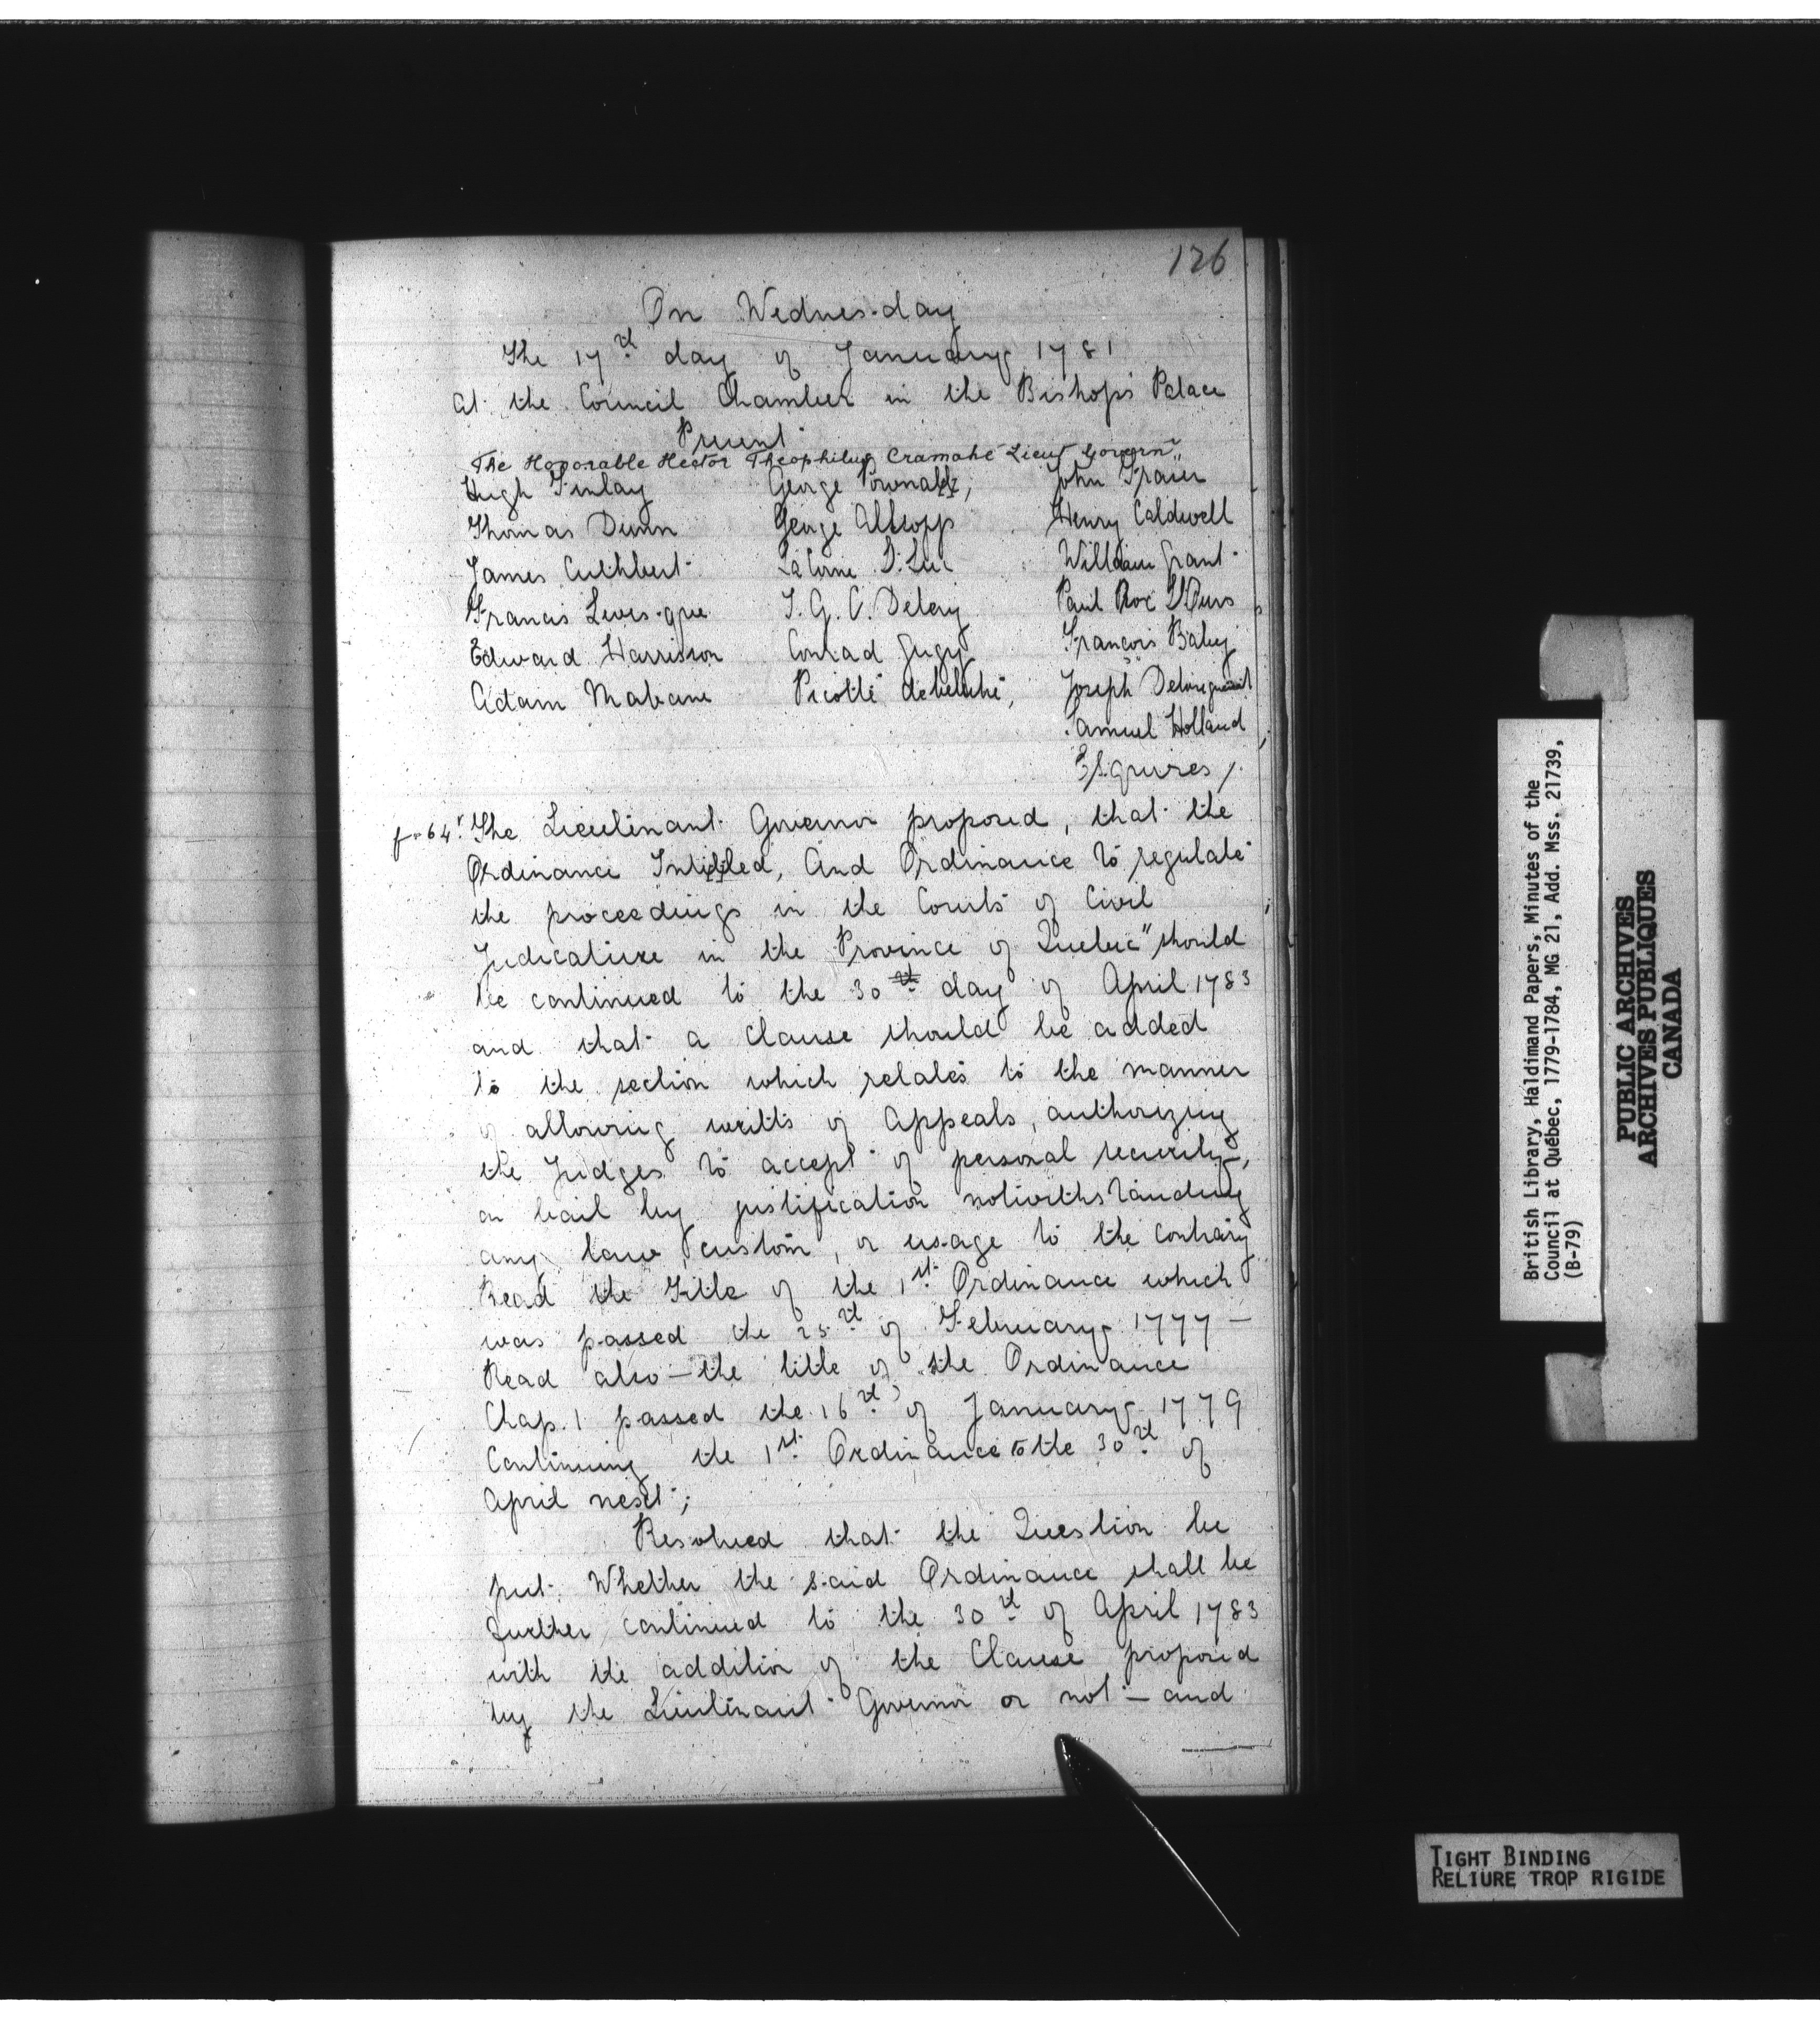 126
On Wednesday
The 17th day of January 1781
at the Council Chamber in the Bishops Palace
Present
The Honorable Hector Theophilus Cramahé Lieut Governr
Hugh Finlay George Pownall, John Fraser
Thomas Dunn George Allsopp Henry Caldwell
James Cuthbert La Corne S. Luc William Grant
Francis Levesque I. G. C. Delery Paul Roc
Edward Harrisson Conrad Gugy François Baby
Adam Mabane Picotté debelestre, Joseph
Samuel Holland
Esquires /.
f-64. The Lieutenant Governor proposed, that the
Ordinance Intitled, And Ordinance to regulate
the proceedings in the Courts of Civil
Judicature in the Province of Quebec" should
be continued to the 30th day of April 1783
and that a Clause should be added
to the section which relates to the manner
of allowing writts of Appeals, authorizing
the Judges to accept of personal security,
on bail by justification notwithstanding
any law, custom, or usage to the contrary
Read the Title of the 1st Ordinance which
was passed the 25th of February 1777 —
Read also — the title of the Ordinance
Chap. 1 passed the 16th of January 1779
Continuing the 1st Ordinance to the 30th of
April next;
Resolved that the Question be
put. Whether the said Ordinance shall be
further continued to the 30th of April 1783
with the addition of the Clause proposed
by the Lieutenant Governor or not — and
British Library, Haldimand Papers, Minutes of the
Council at Québec, 1779-1784, MG 21, Add. Mss. 21739,
(B-79)
PUBLIC ARCHIVES
ARCHIVES PUBLIQUES
CANADA
TIGHT BINDING
RELIURE TROP RIGIDE